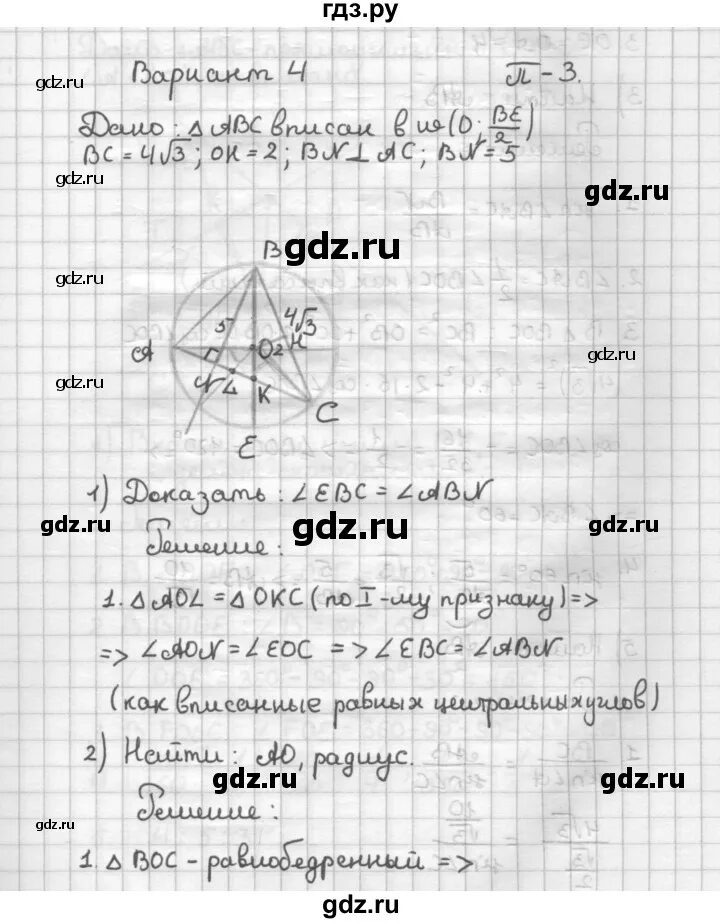 гдз.ру
Вариант 4 П-3.
Дано: △ABC вписан в ω(O; BE/2)
BC = 4√3; OH = 2; BN ⊥ AC; BN = 5
gdz.ru
gdz.ru
B
gdz.ru
5 4√3
A O 2 H
gdz.ru
gdz.ru
N L K C
E
1) Доказать: ∠EBC = ∠ABN
gdz.ru gdz.ru gdz.ru
Решение:
1. △AOL = △OKC (по I-му признаку) =>
=> ∠AON = ∠EOC => ∠EBC = ∠ABN
(как вписанные равных центральных углов)
2) Найти: AO, радиус.
gdz.ru gdz.ru
Решение:
gdz.ru
1. △BOC - равнобедренный =>
gdz.ru gdz.ru